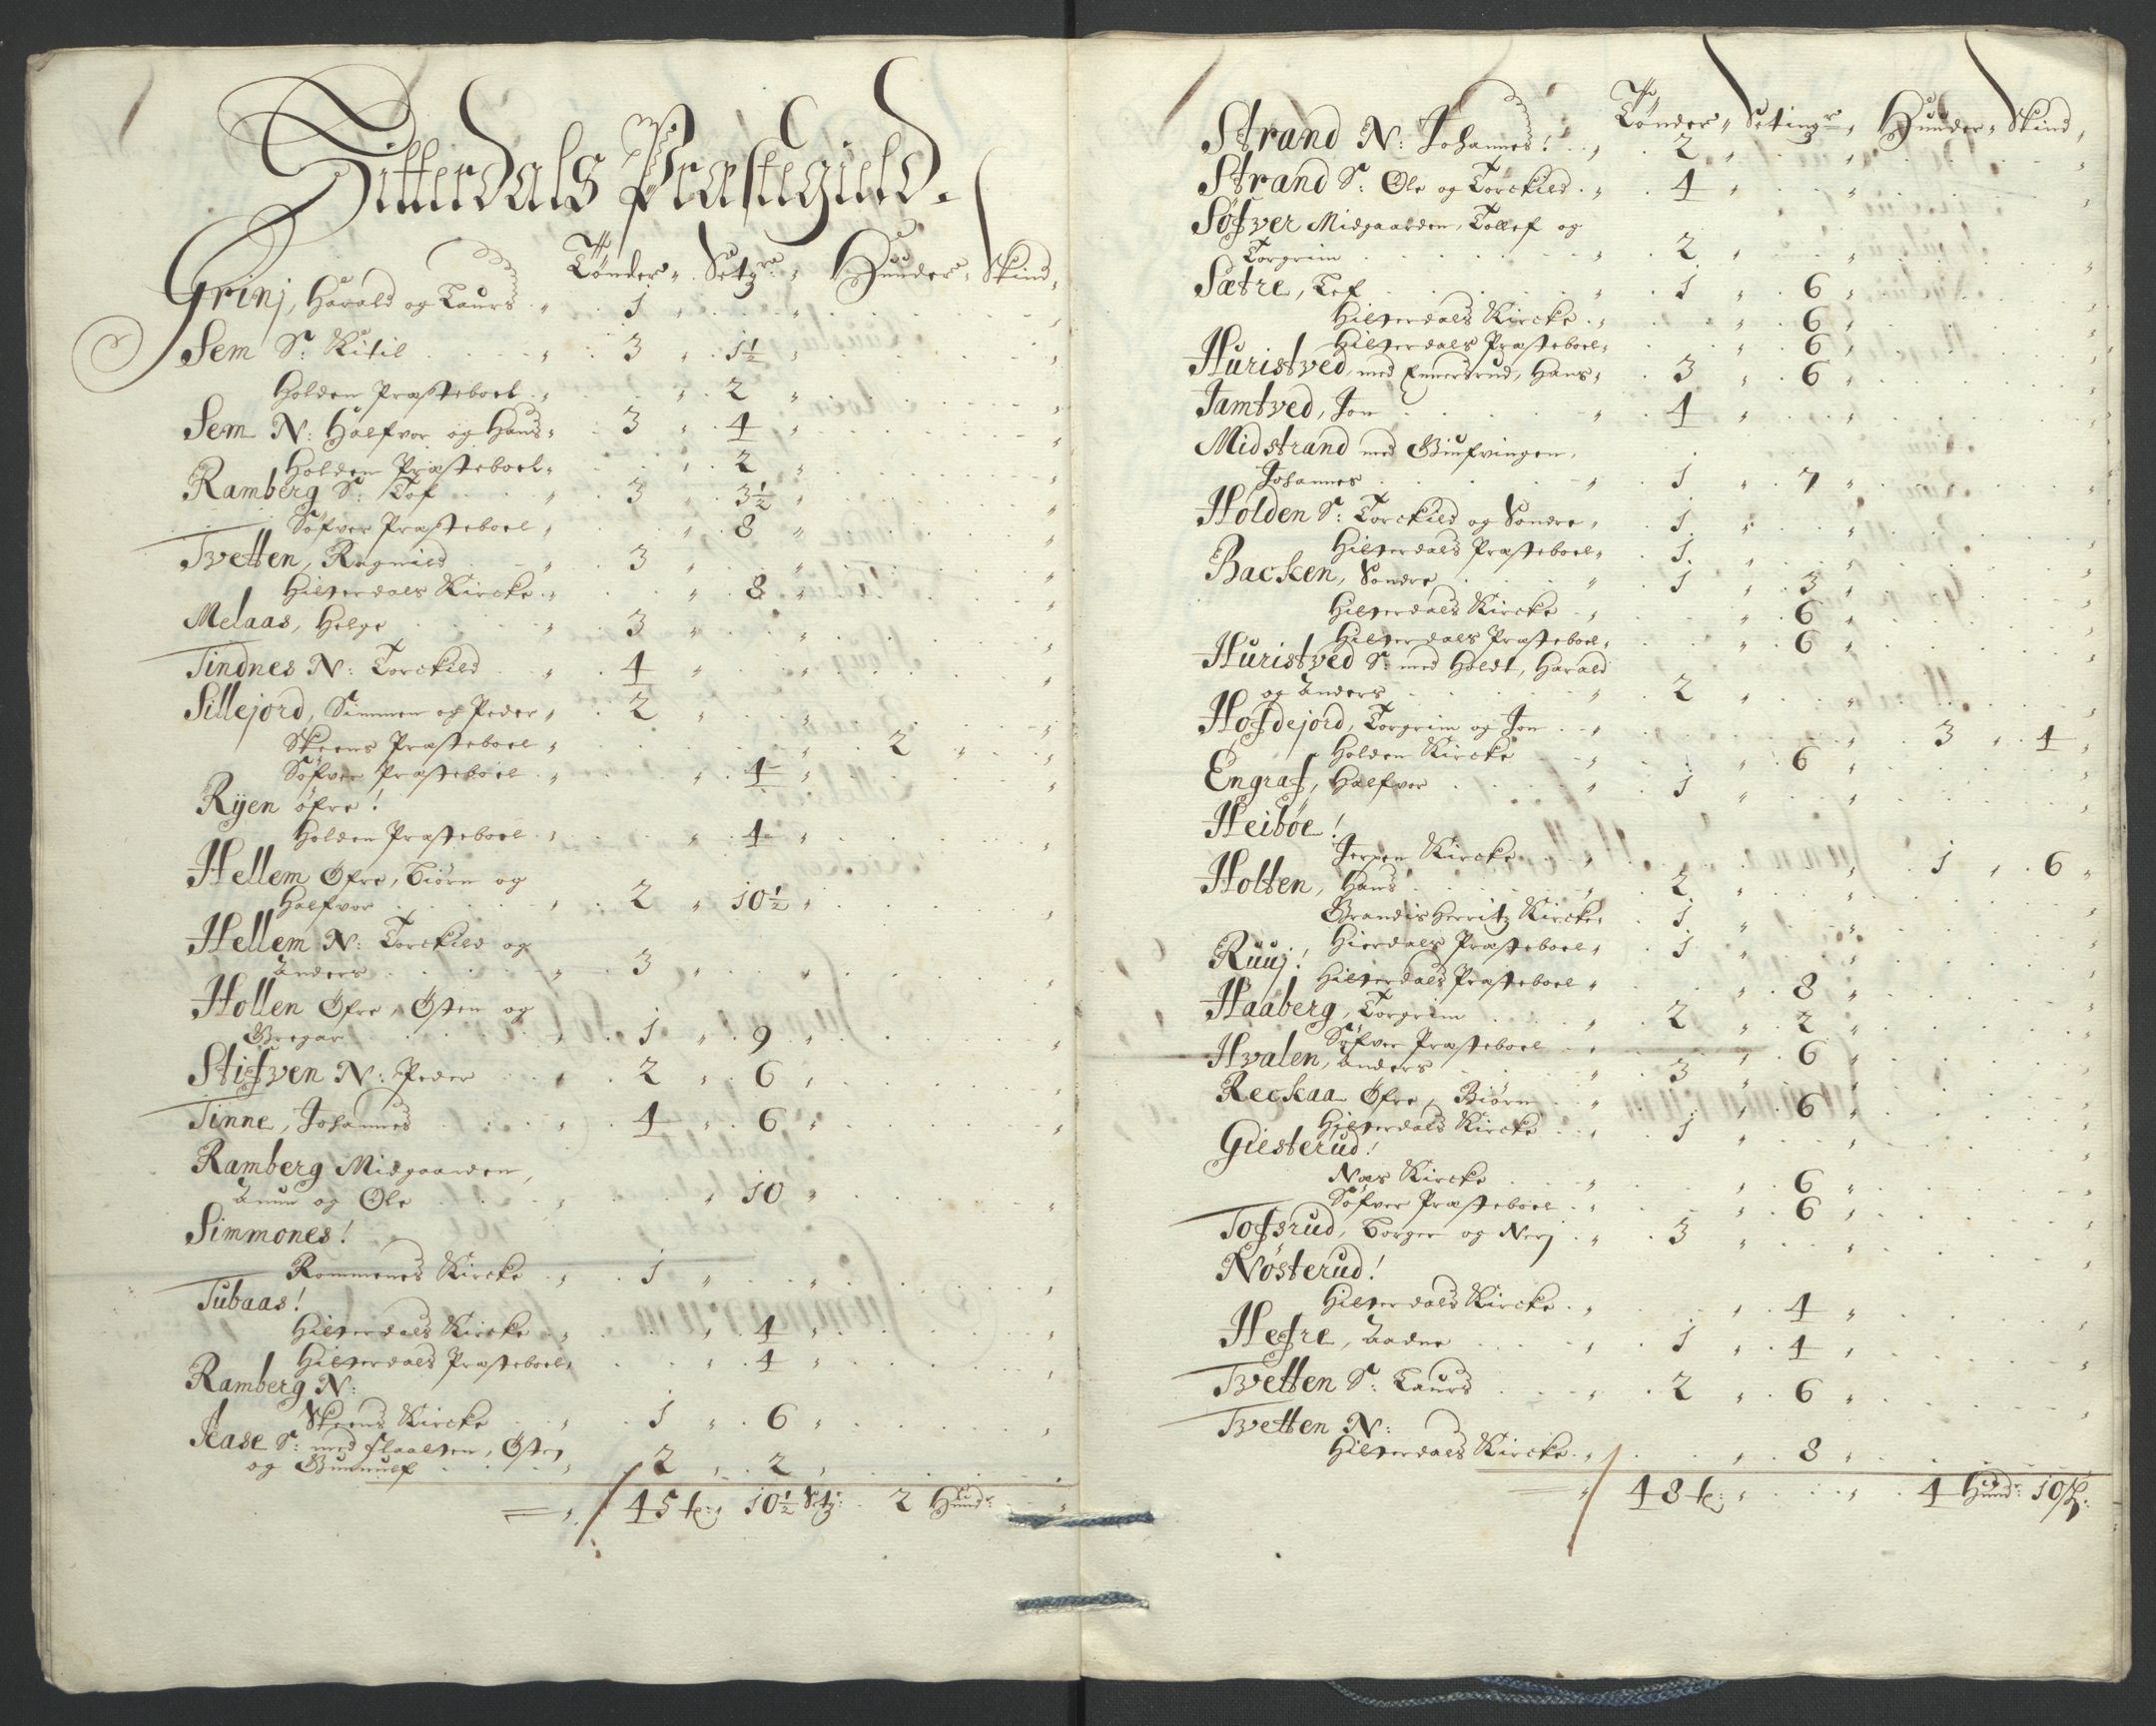 Hitterdals Præstegield.
Tønder, Setgr, Hunder, Skind,
Grinj, Harald og Laurs 1
Sem S: Kitil 3 1½
Holden Præsteboel 2
Sem N: Halfvor og Hans 3 4
Holden Præsteboel 2
Ramberg S: Tof 3 3½
Søfver Præsteboel 8
Tvetten, Ragnild 3
Hitterdals Kircke 8
Melaas, Helge 3
Tindnes N: Torckild 4
Sillejord, Simmen og Peder 2
Skeens Præsteboel 2
Søfver Præsteboel 4
Rÿen øfre!
Holden Præsteboel 4
Hellem Øfre, Biørn og
Halfvor 2 10½
Hellem N: Torckild og
Anders 3
Hollen Øfre, Østen og
Gregar 1 9
Stifven N: Peder 2 6
Tinne, Johannes 4 6
Ramberg Midgaarden,
Anun og Ole 10
Simmones!
Rommenes Kircke 1
Tubaas!
Hitterdals Kircke 4
Hitterdals Præsteboel 4
Ramberg N:
Skeens Kircke 1 6
Aase S: med Flaatten, Østen
og Gunnulf 2 2
45 t: 10½ Setg: 2 Hundr
Tønder, Setingr, Hunder, Skind,
Strand N: Johannes! 2
Strand S: Ole og Torckild 4
Søfver Midgaarden, Tollef og
Torgrim 2
Sætre, Lef 1 6
Hitterdals Kircke 6
Hitterdals Præsteboel 6
Huristved, med Ennersrud, Hans 3 6
Jamtved, Jon 4
Midstrand med Giufvingen,
Johannes 1 7
Holden S: Torckild og Sondre 1
Hitterdals Præsteboel 1
Backen, Sondre 1 3
Hitterdals Kircke 6
Hitterdals Præsteboel 6
Huristved S: med Holdt, Harald
og Anders 2
Hofdejord, Torgrim og Jon 3 4
Holden Kircke 6
Engraf, Halfvor 1
Heibøe!
Jerpen Kircke 1 6
Holten, Hans 2
Brandisherritz Kircke 1
Hierdals Præsteboel 1
Ruuj!
Hitterdals Præsteboel 8
Haaberg, Torgrim 2 2
Søfver Præsteboel 6
Hvalen, Anders 3
Reckaa Øfre, Biørn 6
Hitterdals Kircke 1
Giesterud!
Næs Kircke 6
Søfver Præsteboel 6
Tofsrud, Borger og Nerj 3
Nösterud!
Hitterdals Kircke 4
Hefre, Aadne 1 4
Tvetten S: Laurs 2 6
Tvetten N:
Hitterdals Kircke 8
48 t: 4 Hundr: 10 sk: